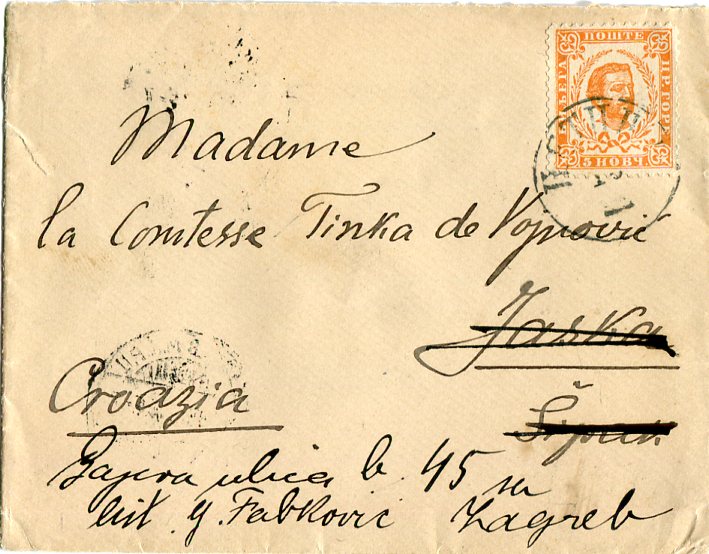 ПОШТЕ
ЦР. ГОРЕ
5 НОВЧ.
Madame
la Comtesse Tinka de Vojnović
Jaska
Croazia
Šipak
Gajeva ulica b. 45
Fabković Zagreb